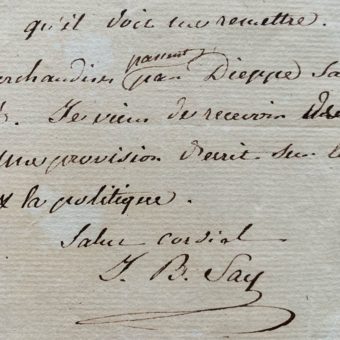 qu'il doit me remettre.
passent
archandises par Dieppe Sa
Je viens de recevoir
une provision d'ecrit sur l
& la politique.
Salut cordial
J. B. Say